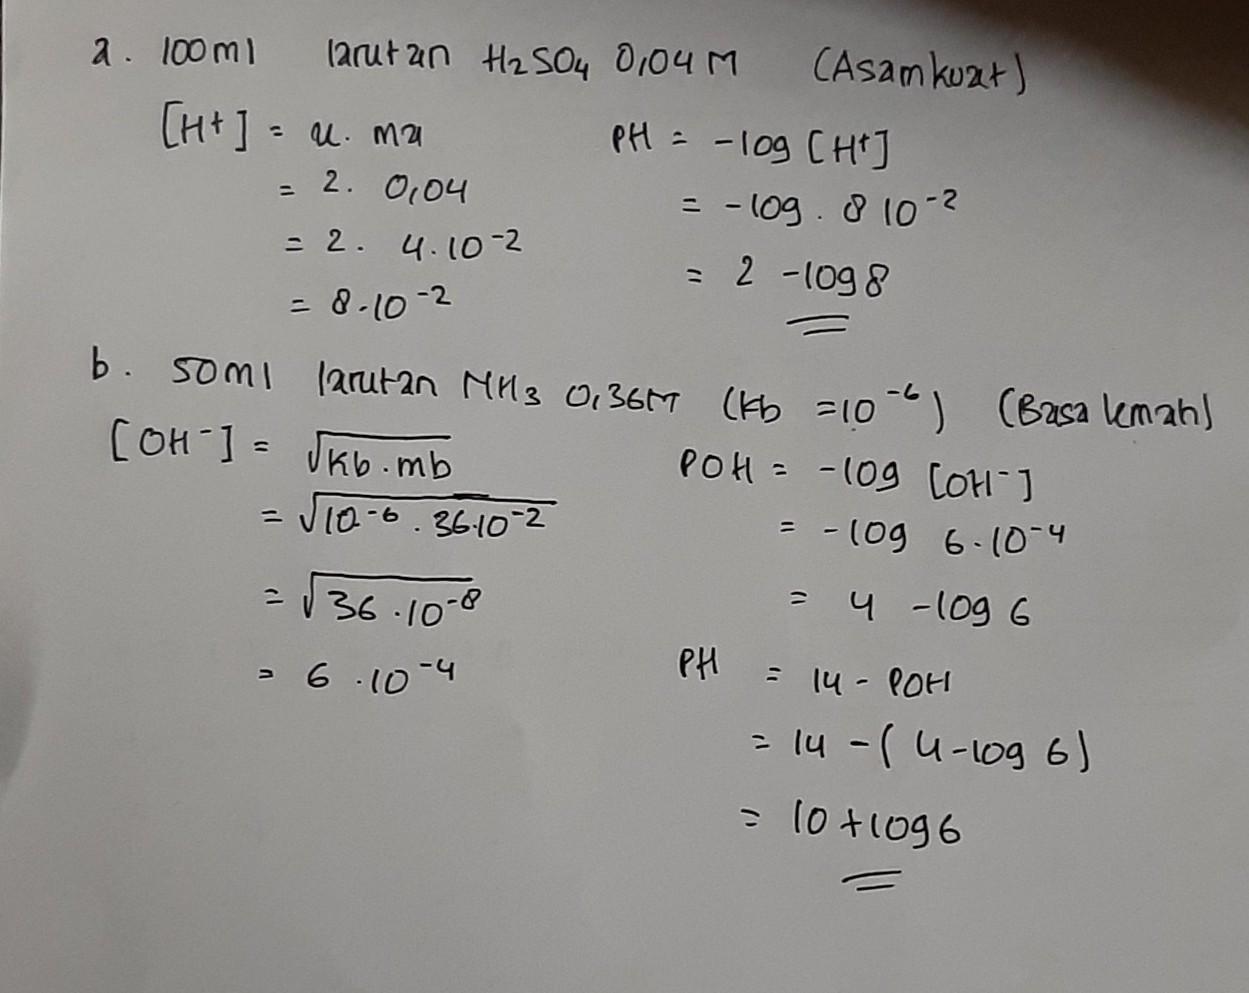 a. 100ml larutan H2SO4 0,04M (Asam kuat)
[H+] = a. ma
= 2. 0,04
= 2. 4.10-2
= 8.10-2
PH = -log [H+]
= -log. 8 10-2
= 2 -log 8
b. 50ml larutan NH3 0,36M (Kb =10-6) (Basa lemah)
[OH-] = √Kb.mb
= √10-6 . 36.10-2
= √36 .10-8
= 6 .10-4
POH = -log [OH-]
= -log 6.10-4
= 4 -log 6
PH = 14 - POH
= 14 -(4-log 6)
= 10 +log6